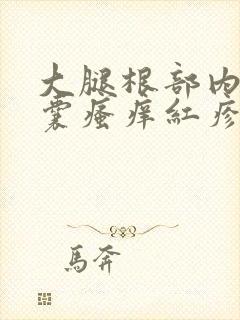 大腿根部内
囊瘙痒红疹
馬奔